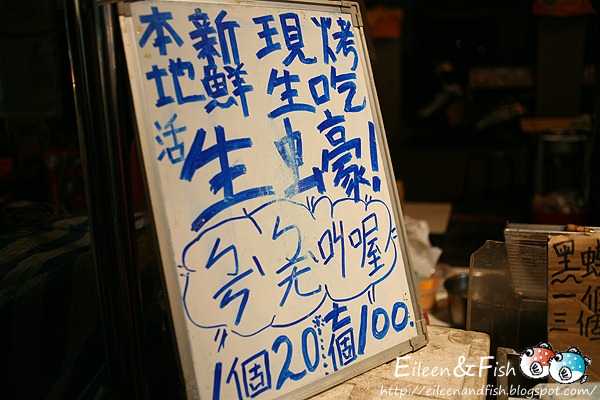 本新現烤
地鮮生吃
活生蠔!
叫喔
1個20 七個100.
黑
一個
三個
Eileen&Fish
http://eileenandfish.blogspot.com/